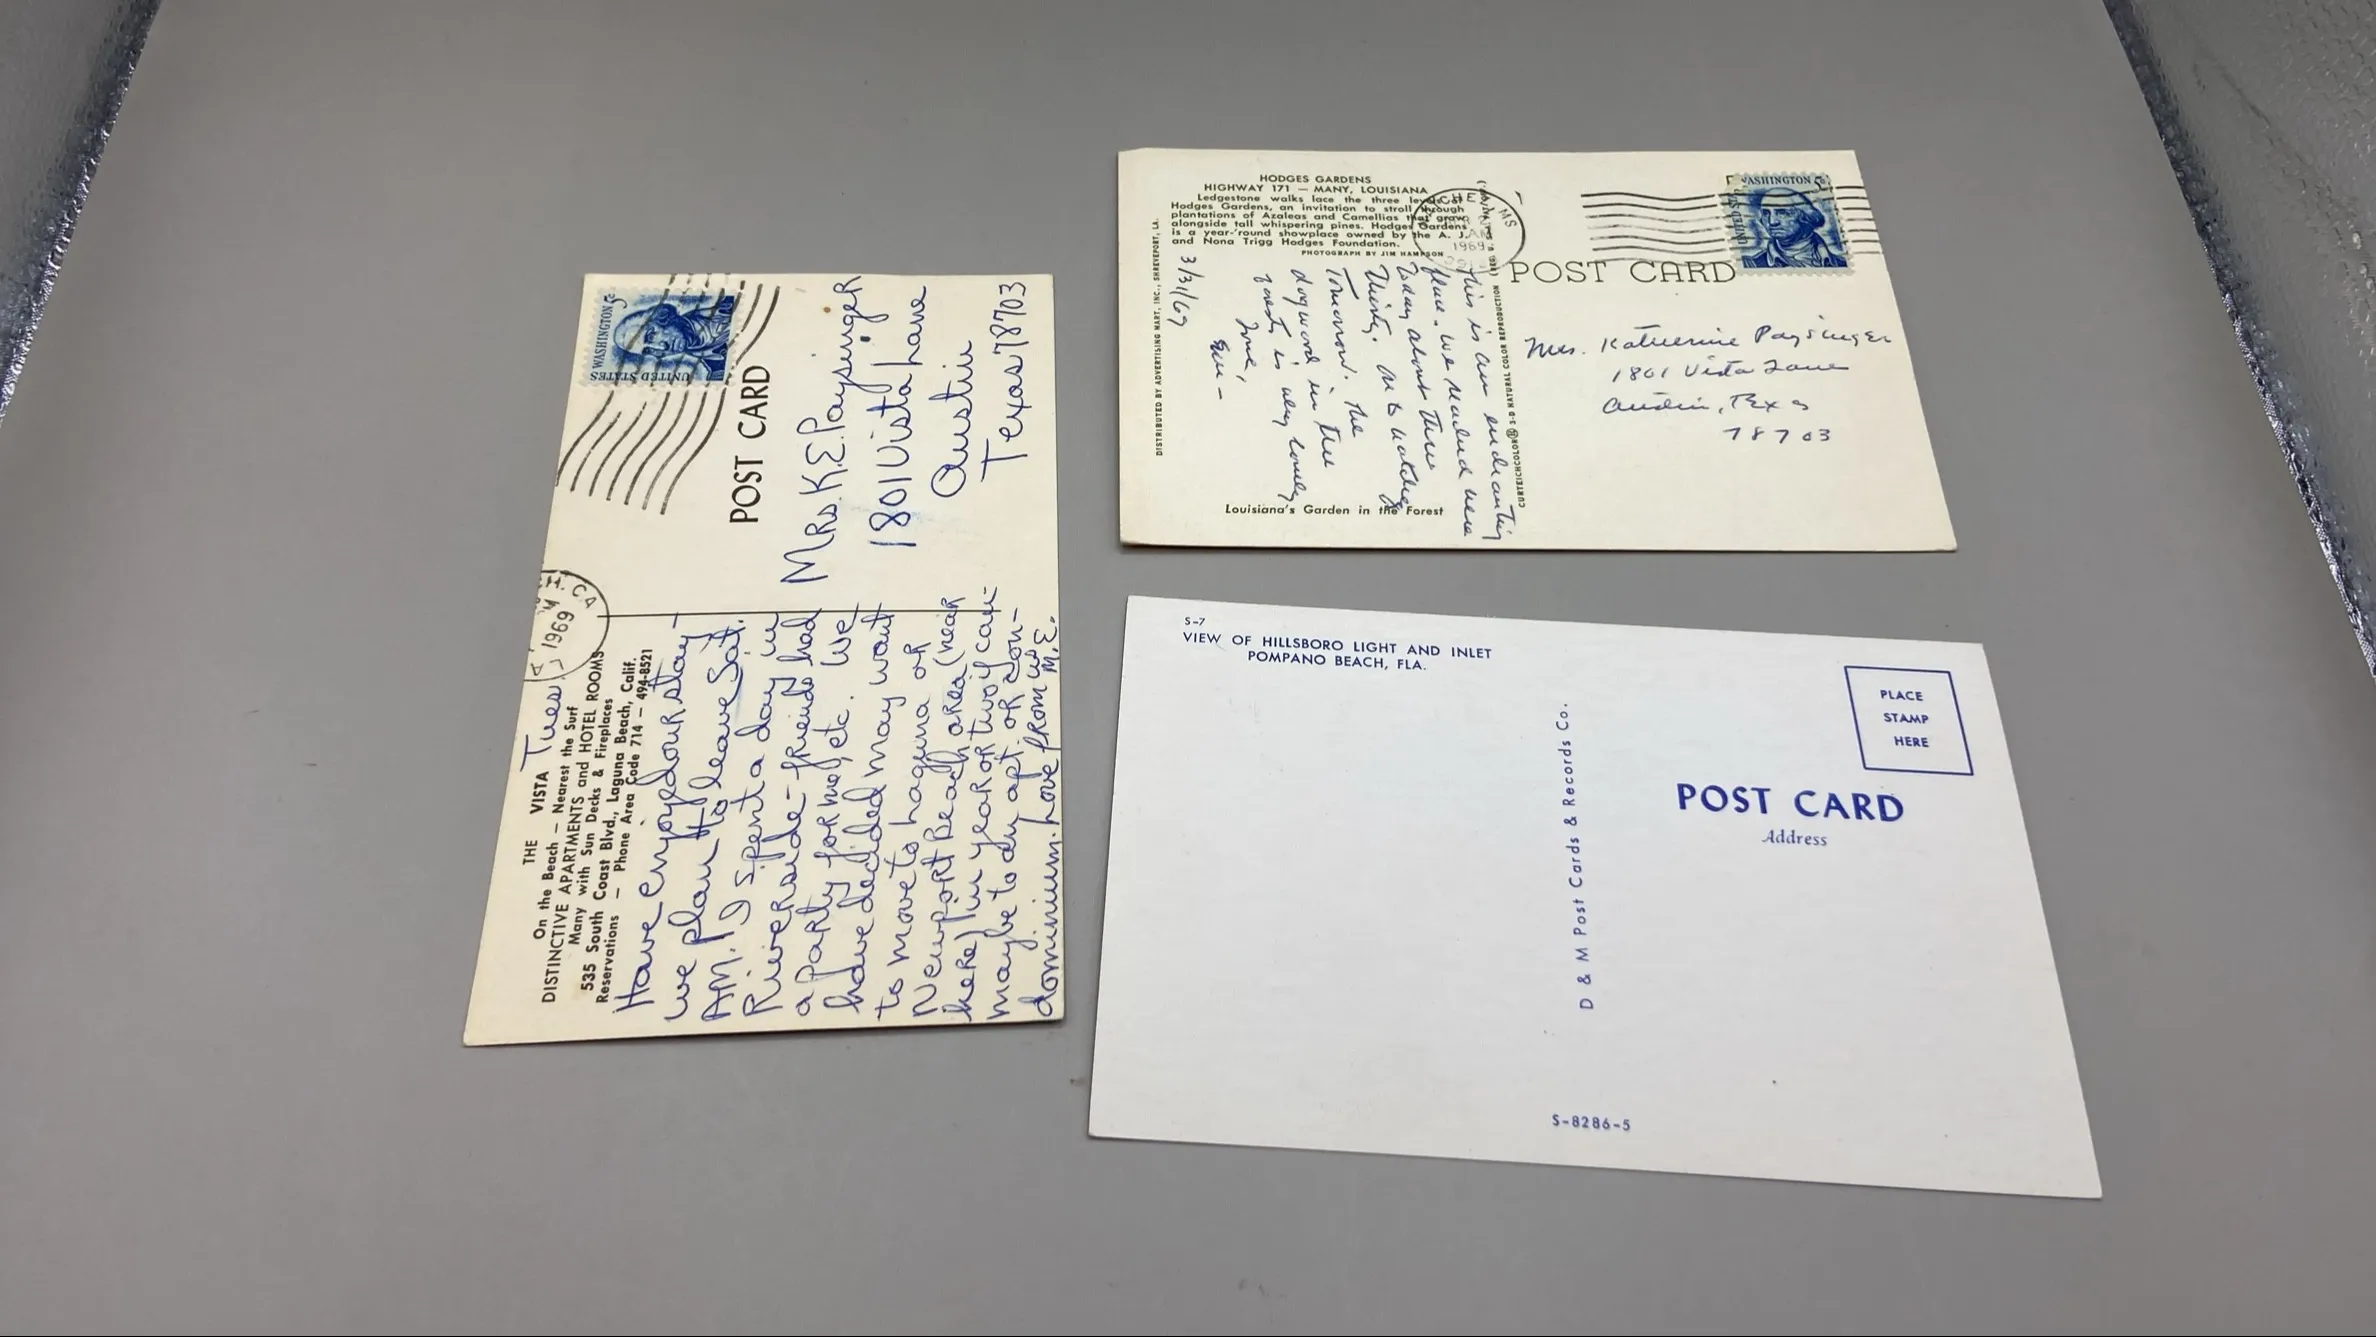 THE VISTA
On the Beach — Nearest the Surf
DISTINCTIVE APARTMENTS and HOTEL ROOMS
Many with Sun Decks & Fireplaces
535 South Coast Blvd., Laguna Beach, Calif.
Reservations — Phone Area Code 714 — 494-8521
Tues.
Have enjoyed our stay -
we plan to leave Sat.
AM. I spent a day in
Riverside - friends had
a party for me, etc. We
have decided may want
to move to Laguna or
Newport Beach area (near
here) in year or two if can -
maybe to an apt. or con-
dominium. Love from us
M.E.
CA
1969
WASHINGTON 5c
UNITED STATES
POST CARD
Mrs. K.E. Paysinger
1801 Vista Lane
Austin
Texas 78703
HODGES GARDENS
HIGHWAY 171 — MANY, LOUISIANA
Ledgestone walks lace the three levels of
Hodges Gardens, an invitation to stroll through
plantations of Azaleas and Camellias that grow
alongside tall whispering pines. Hodges Gardens
is a year-'round showplace owned by the A. J.
and Nona Trigg Hodges Foundation.
PHOTOGRAPH BY JIM HAMPSON
DISTRIBUTED BY ADVERTISING MART, INC., SHREVEPORT, LA.
3/31/69
This is an enchanting
place. We reached here
today about three
thirty. On to Natchez
Tomorrow. The
dogwood in the
forests is very lovely
Love,
Louisiana's Garden in the Forest
CURTEICHCOLOR® 3-D NATURAL COLOR REPRODUCTION
MS
1969
WASHINGTON 5c
POST CARD
Mrs. Katherine Paysinger
1801 Vista Lane
Austin, Texas
78703
S-7
VIEW OF HILLSBORO LIGHT AND INLET
POMPANO BEACH, FLA.
D & M Post Cards & Records Co.
PLACE
STAMP
HERE
POST CARD
Address
S-8286-5